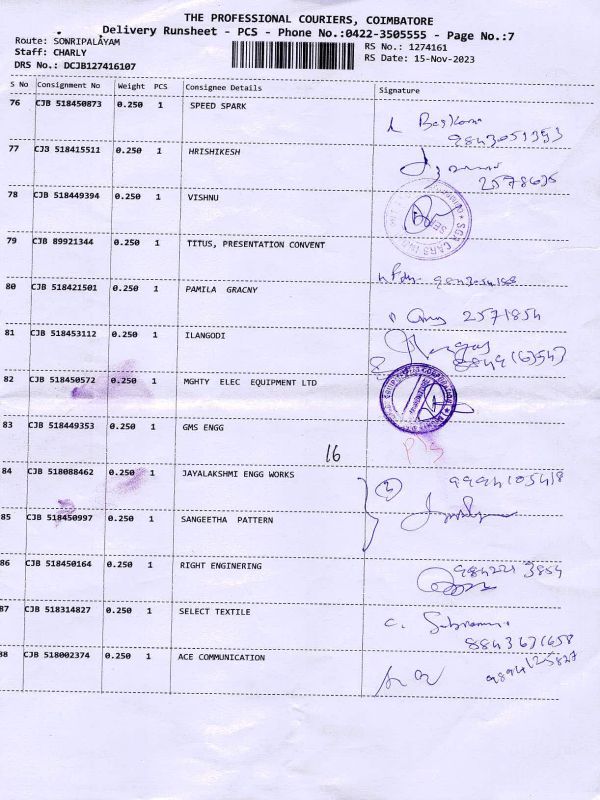 THE PROFESSIONAL COURIERS, COIMBATORE
Delivery Runsheet - PCS - Phone No.:0422-3505555 - Page No.:7
Route: SOWRIPALAYAM
RS No.: 1274161
Staff: CHARLY
RS Date: 15-Nov-2023
DRS No.: DCJB127416107
S No Consignment No Weight PCS Consignee Details Signature
76 CJB 518450873 0.250 1 SPEED SPARK
77 CJB 518415511 0.250 1 HRISHIKESH
2578635
78 CJB 518449394 0.250 1 VISHNU
79 CJB 89921344 0.250 1 TITUS, PRESENTATION CONVENT
80 CJB 518421501 0.250 1 PAMILA GRACNY
2571854
81 CJB 518453112 0.250 1 ILANGODI
82 CJB 518450572 0.250 1 MGHTY ELEC EQUIPMENT LTD
83 CJB 518449353 1 GMS ENGG
16
84 CJB 518088462 0.250 1 JAYALAKSHMI ENGG WORKS
85 CJB 518450997 0.250 1 SANGEETHA PATTERN
86 CJB 518450164 0.250 1 RIGHT ENGINERING
87 CJB 518314827 0.250 1 SELECT TEXTILE
8843671658
88 CJB 518002374 0.250 1 ACE COMMUNICATION
9894125827